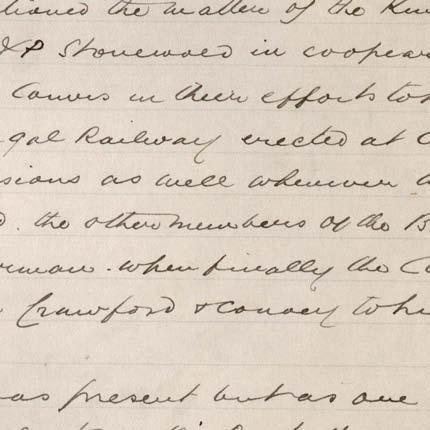 tioned the matter of the
& P Stonewood in cooper
in their efforts to
gal Railway erected at
sions as well wherever
the other members of the B
rman. when finally the Co
Crawford & convey to
as present but as one